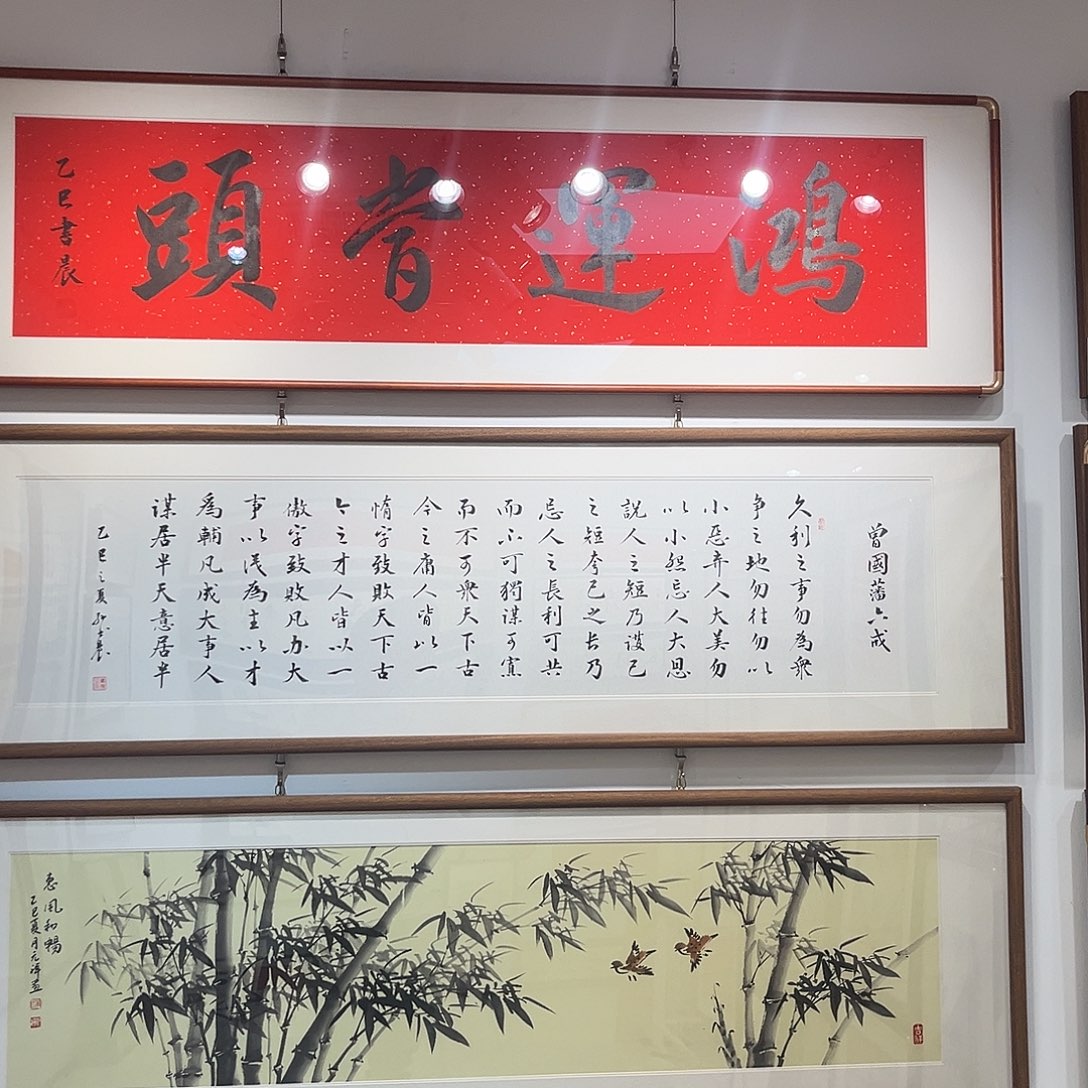 鴻運當頭
乙巳書晨
曾國藩六戒
久利之事勿為衆
争之地勿往勿以
小惡弃人大美勿
以小怨忘人大恩
説人之短乃護己
之短夸己之长乃
忌人之長利可共
而不可獨謀可寡
而不可衆天下古
今之庸人皆以一
惰字致敗天下古
今之才人皆以一
傲字致敗凡办大
事以识為主以才
為輔凡成大事人
謀居半天意居半
乙巳之夏
惠風和暢
乙巳夏月元祥畫